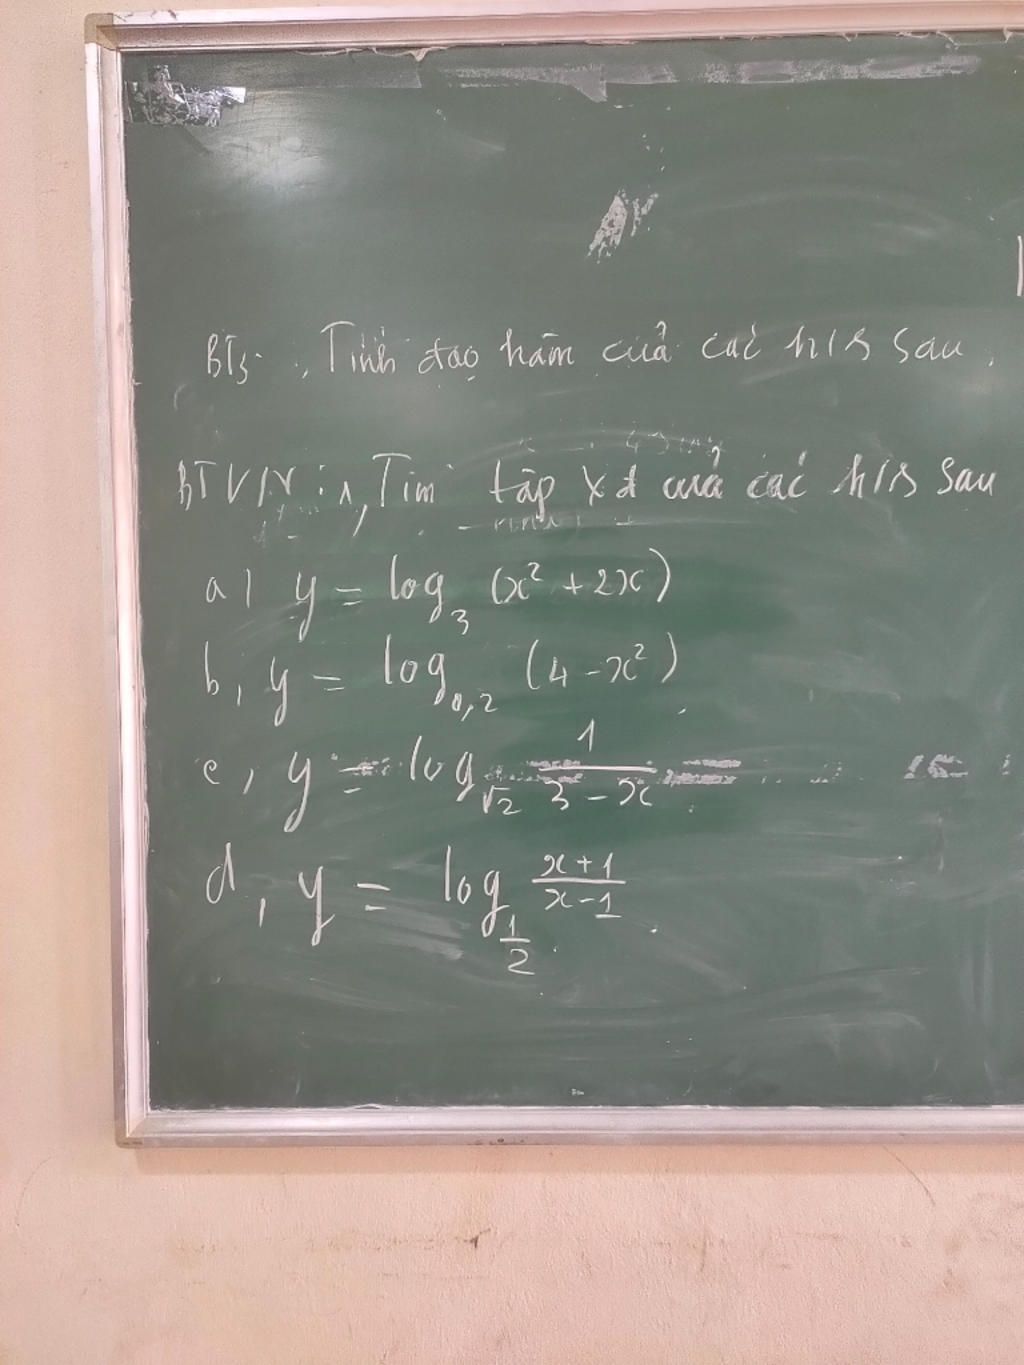 BT3. , Tính đạo hàm của các h/s sau.
BTVN: 1, Tìm tập xđ của các h/s sau
a) y = log₃ (x² + 2x)
b, y = log₀,₂ (4 - x²)
c, y = log_√2 1/(3 - x)
d, y = log_1/2 (x+1)/(x-1)